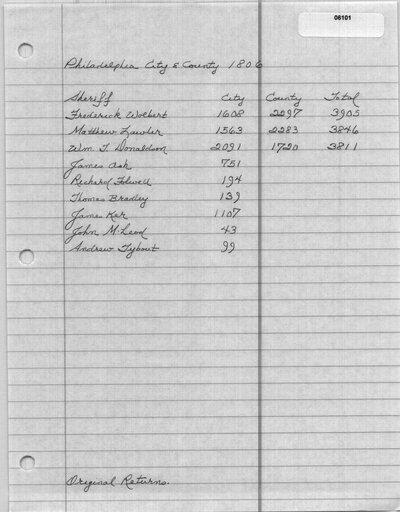 06101
Philadelphia City & County 1806
Sheriff City County Total
Frederick Wolbert 1608 2297 3905
Matthew Lawler 1563 2283 3846
Wm. T. Donaldson 2091 1720 3811
James Ash 751
Richard Folwell 194
Thomas Bradley 139
James Ker 1107
John McLeod 43
Andrew Tybout 99
Original Returns.